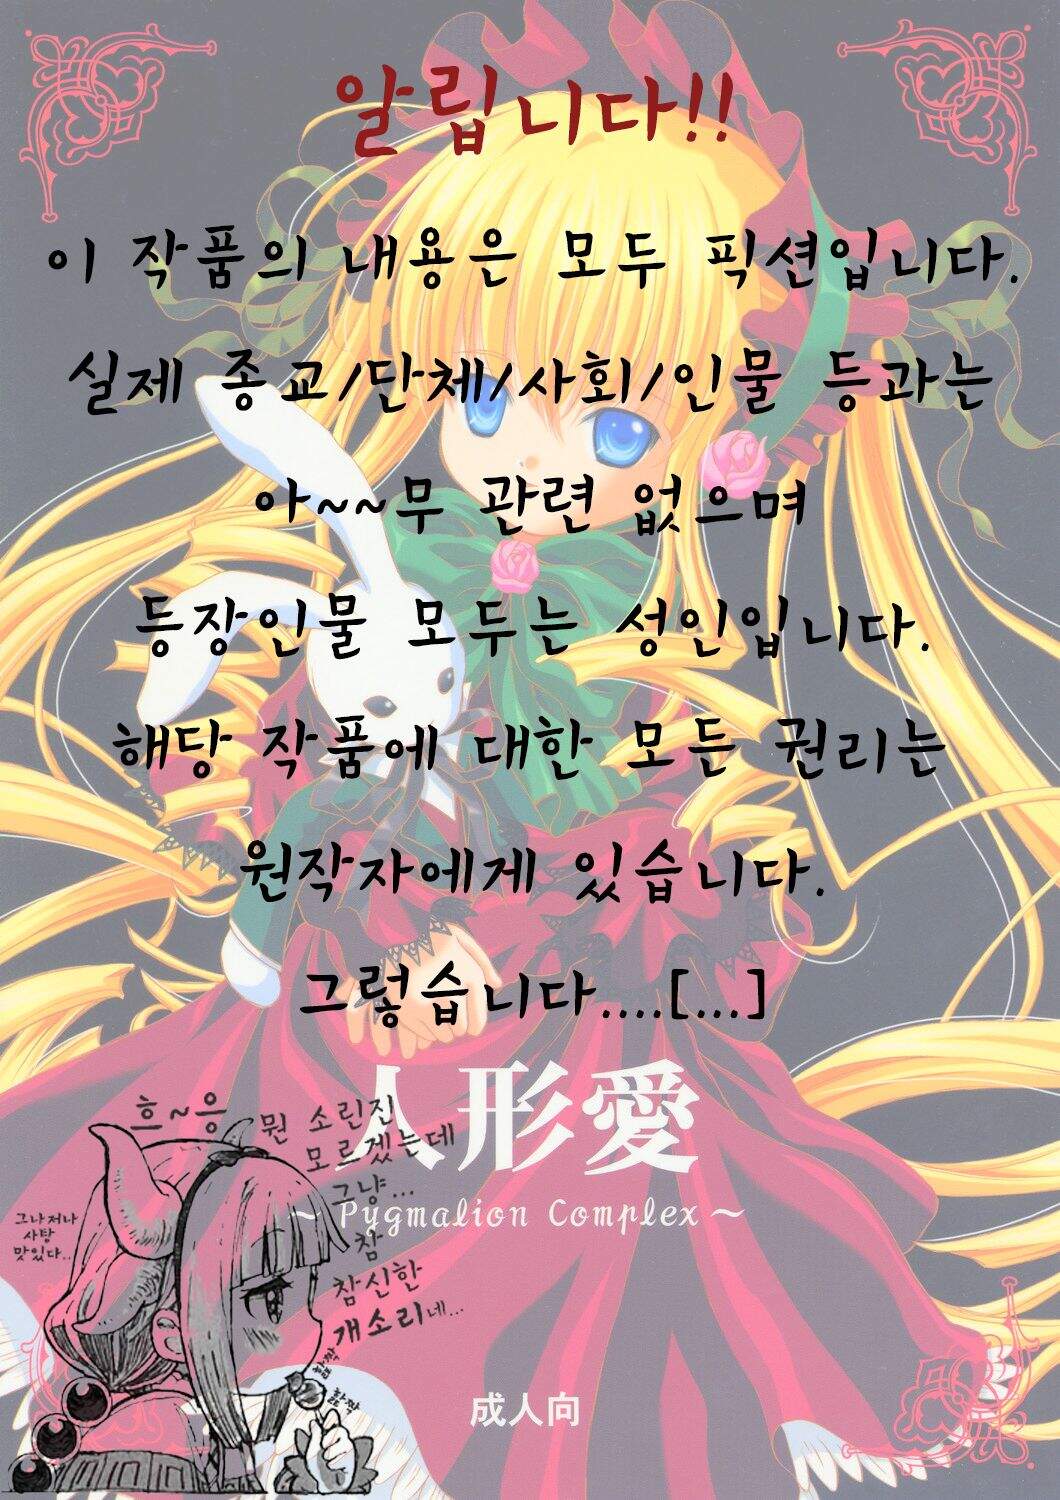 알립니다!!
이 작품의 내용은 모두 픽션입니다.
실제 종교/단체/사회/인물 등과는
아~~무 관련 없으며
등장인물 모두는 성인입니다.
해당 작품에 대한 모든 권리는
원작자에게 있습니다.
그렇습니다....[...]
人形愛
~ Pygmalion Complex ~
흐~응
뭔 소린진
모르겠는데
그냥...
참
참신한
개소리네...
그나저나
사탕
맛있다..
할짝
할짝
成人向